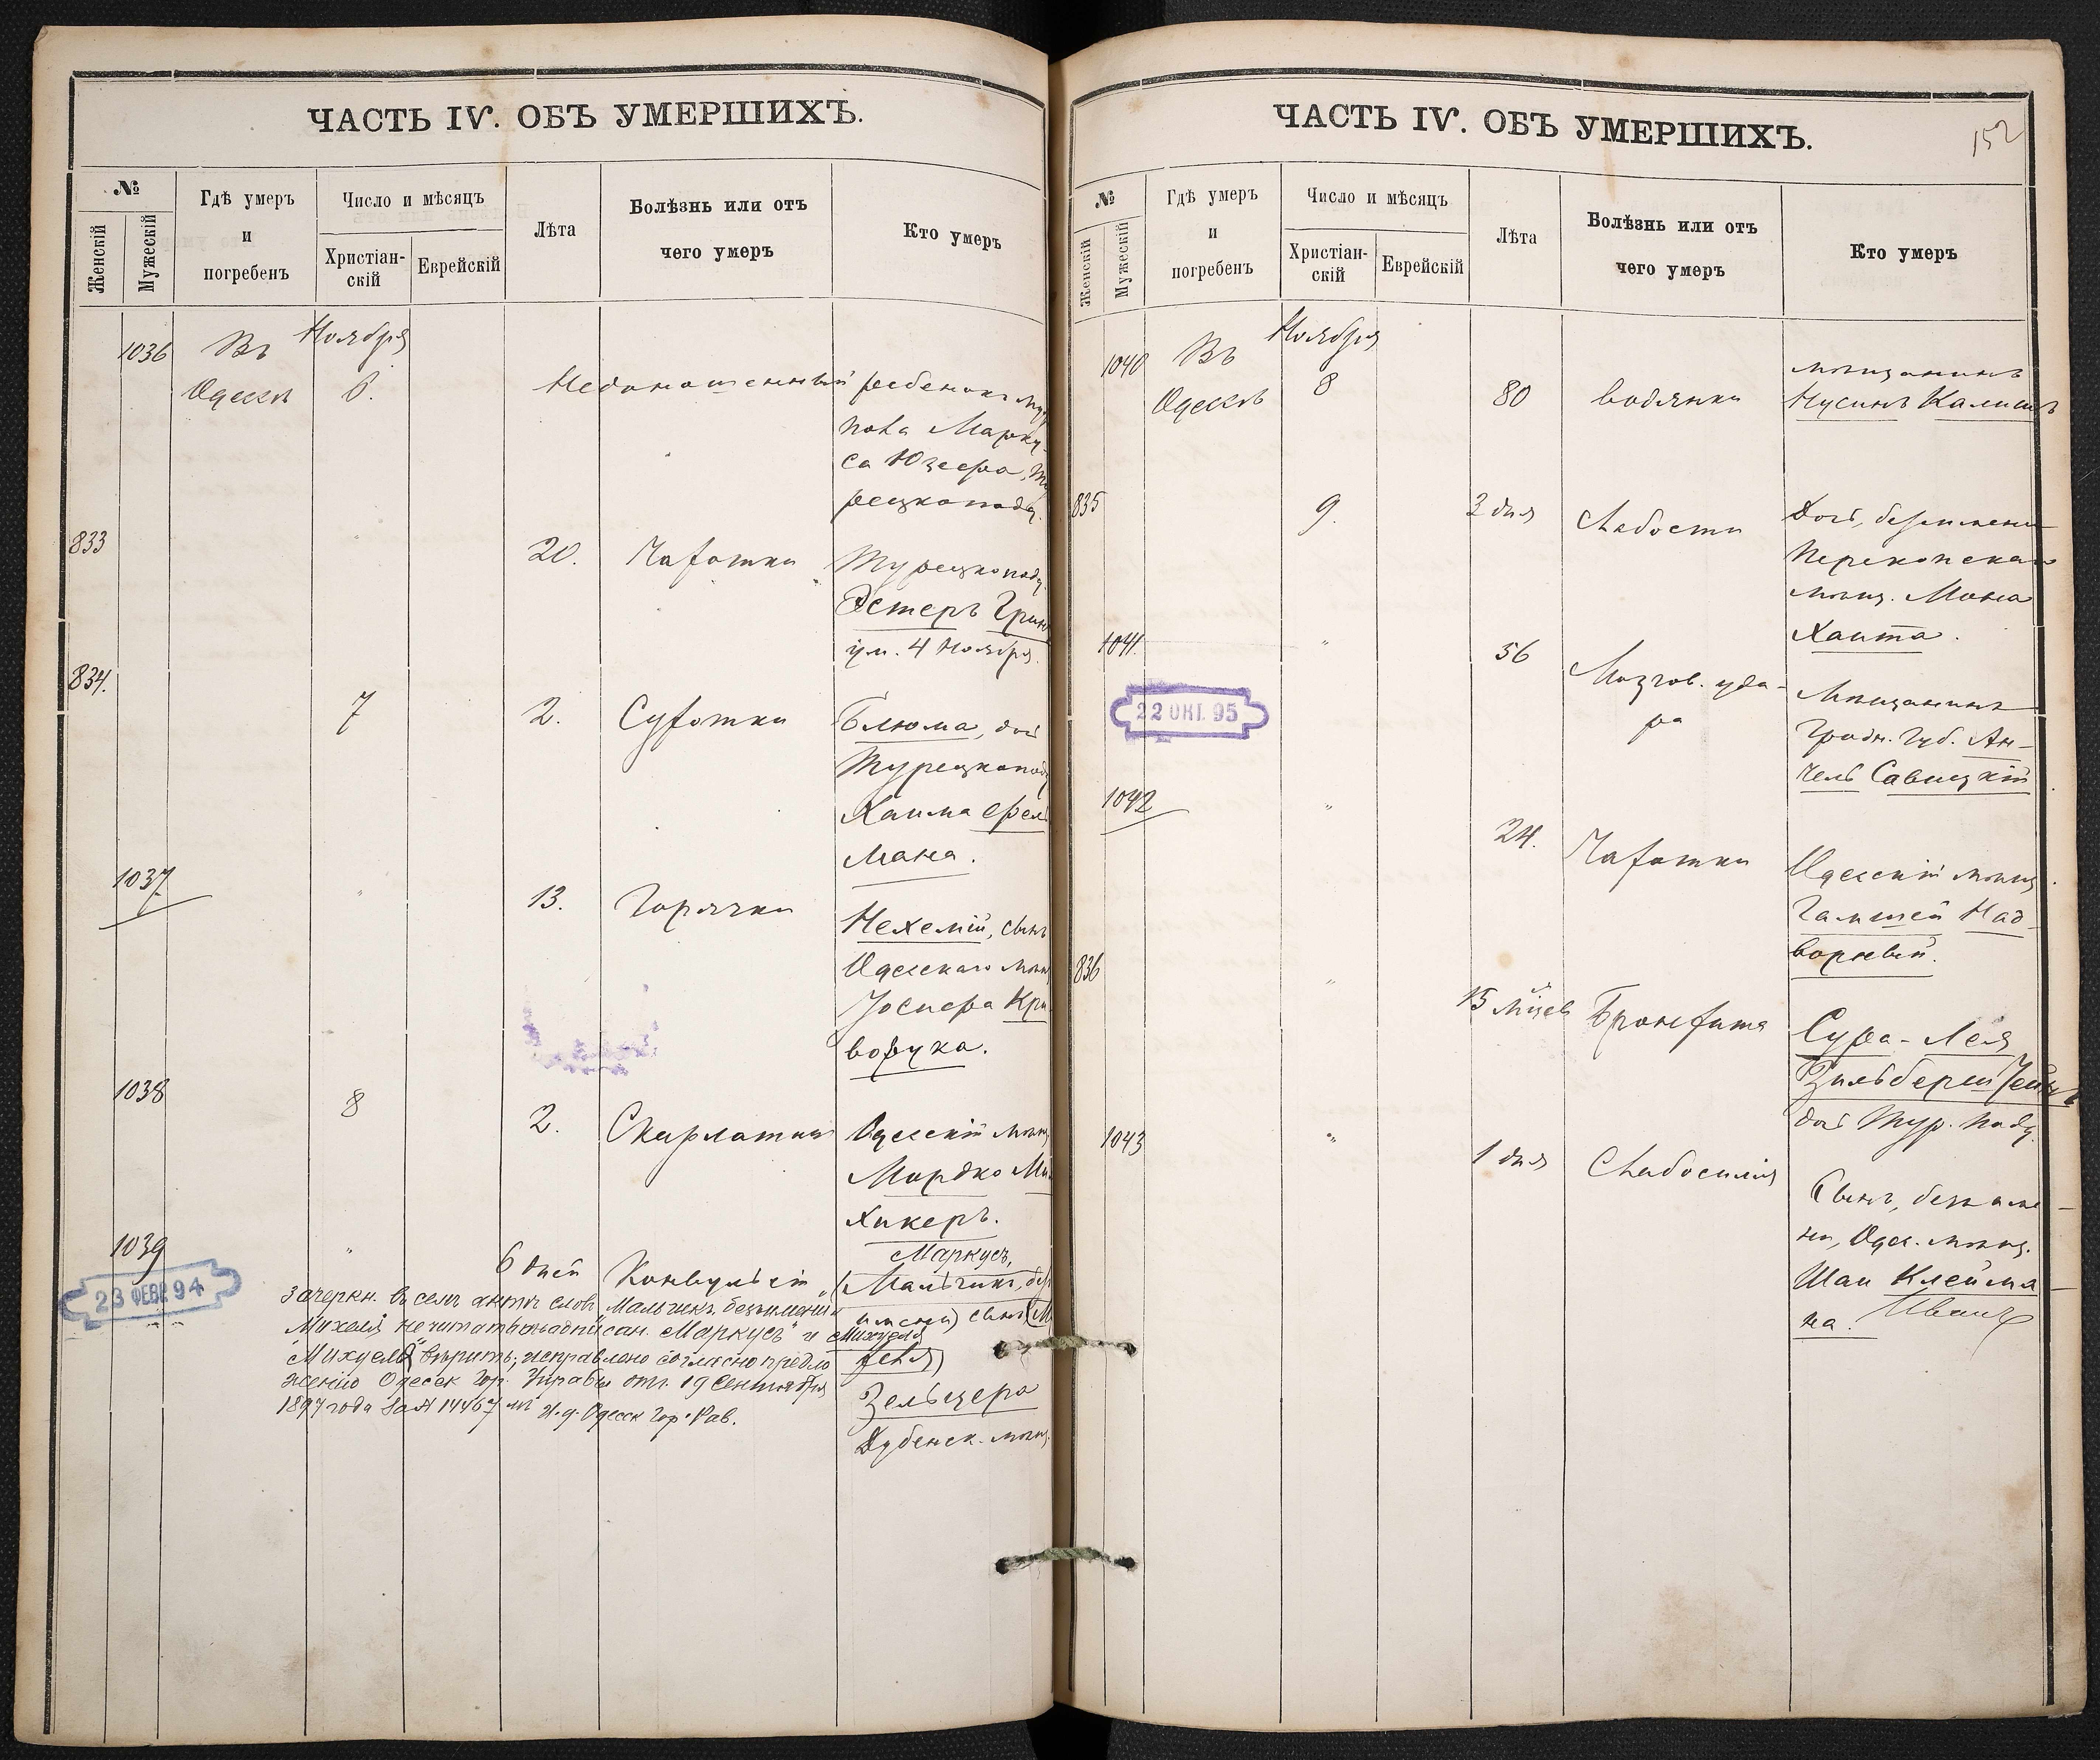 ЧАСТЬ IV. ОБЪ УМЕРШИХЪ.
№
Женскій
Мужескій
Гдѣ умеръ
и
погребенъ
Число и мѣсяцъ
Христіан-
скій
Еврейскій
Лѣта
Болѣзнь или отъ
чего умеръ
Кто умеръ
1036 Въ Ноября
Одессѣ 6. Недоношенный ребенокъ
Марку-
са Юзефа,
рецкопода.
833 " 20. Чахотки Турецкопод.
Эстеръ Грин
ум. 4 Ноября.
834. 7 2. Сухотки Блюма, дочь
Турецкопод
Хаима Фель
мана.
1037 " 13. Горячки Нехемій, сынъ
Одесскаго мѣщ
Іосифа Кри
воручка.
1038 8 2. Скарлатины Одесскій мѣщ
Мордко Ми
хикеръ.
1039 " 6 дней Конвульсіи Маркусъ,
(Мальчикъ, без
имени) сына (М
Михуеля
хеля)
Зельцера
Дубенск. мѣщ.
23 ФЕВР 94
Зачеркн. въ семъ актѣ слов. Мальчикъ, безъ имени и
Михеля не читать, надписан. "Маркусъ" и
"Михуеля" вѣрить, исправлено согласно предло
женію Одесск Гор. Управы отъ 19 Сентября
1894 года за № 14467 И. д. Одесск Гор. Рав.
ЧАСТЬ IV. ОБЪ УМЕРШИХЪ.
152
№
Женскій
Мужескій
Гдѣ умеръ
и
погребенъ
Число и мѣсяцъ
Христіан-
скій
Еврейскій
Лѣта
Болѣзнь или отъ
чего умеръ
Кто умеръ
1040 Въ Ноября мѣщанинъ
Одессѣ 8 80 Водянки Нусинъ Калишъ
835 9. 2 дня Слабости Дочь, безъ имени
Перекопскаго
мѣщ. Мона
Хаита.
1041. " 56 Мозгов. уда-
ра
Мѣщанинъ
Гродн. Губ. Ан-
чель Савицкій
22 ОКТ. 95
1042 " 24. Чахотки Одесскій мѣщ.
Гамшей Над-
ворный.
836 " 15 м-цевъ Бронхита Сура-Лея
Зильберштейнъ
дочь Тур. подд.
1043 " 1 дня Слабосилія Сынъ, безъ име-
ни, Одес. мѣщ.
Шаи Клейма-
на.